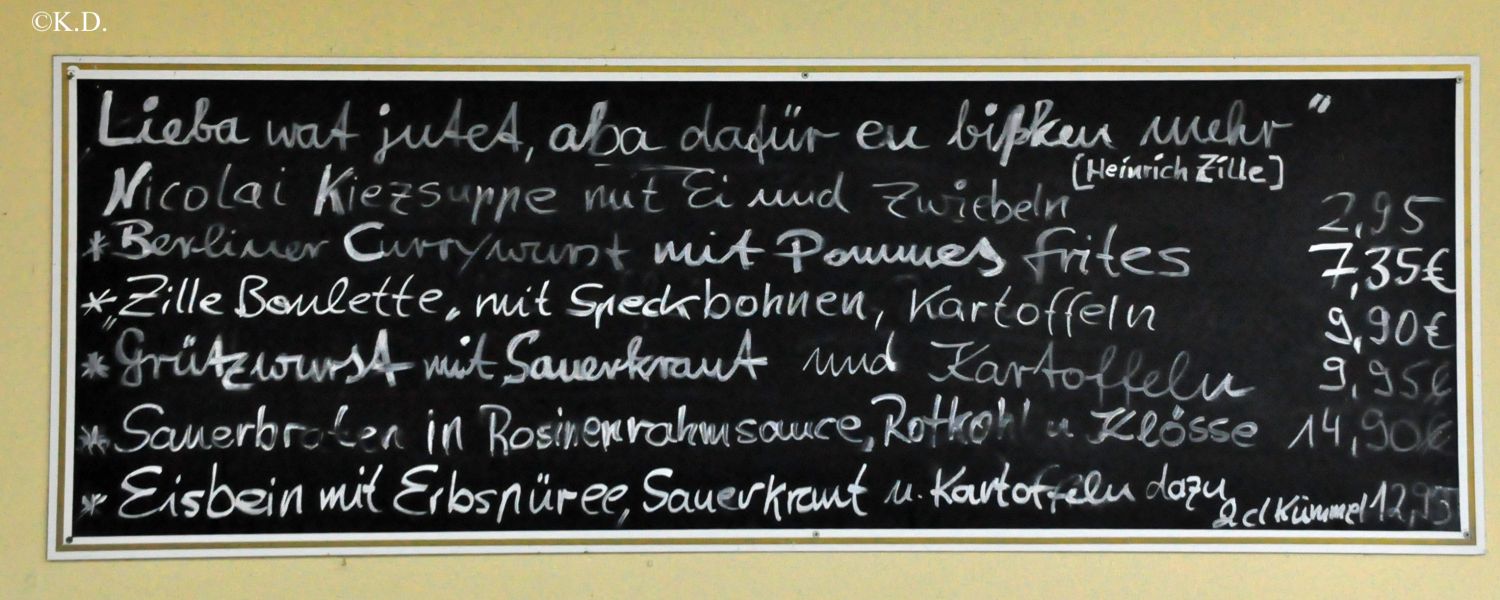 ©K.D.
„Lieba wat jutet, aba dafür en bißken mehr"
[Heinrich Zille]
Nicolai Kiezsuppe mit Ei und Zwiebeln 2,95
* Berliner Currywurst mit Pommes frites 7,35€
* Zille Boulette, mit Speckbohnen, Kartoffeln 9,90€
* Grützwurst mit Sauerkraut und Kartoffeln 9,95€
* Sauerbraten in Rosinenrahmsauce, Rotkohl u Klösse 14,90€
* Eisbein mit Erbspüree, Sauerkraut u. Kartoffeln dazu 2cl Kümmel 12,95